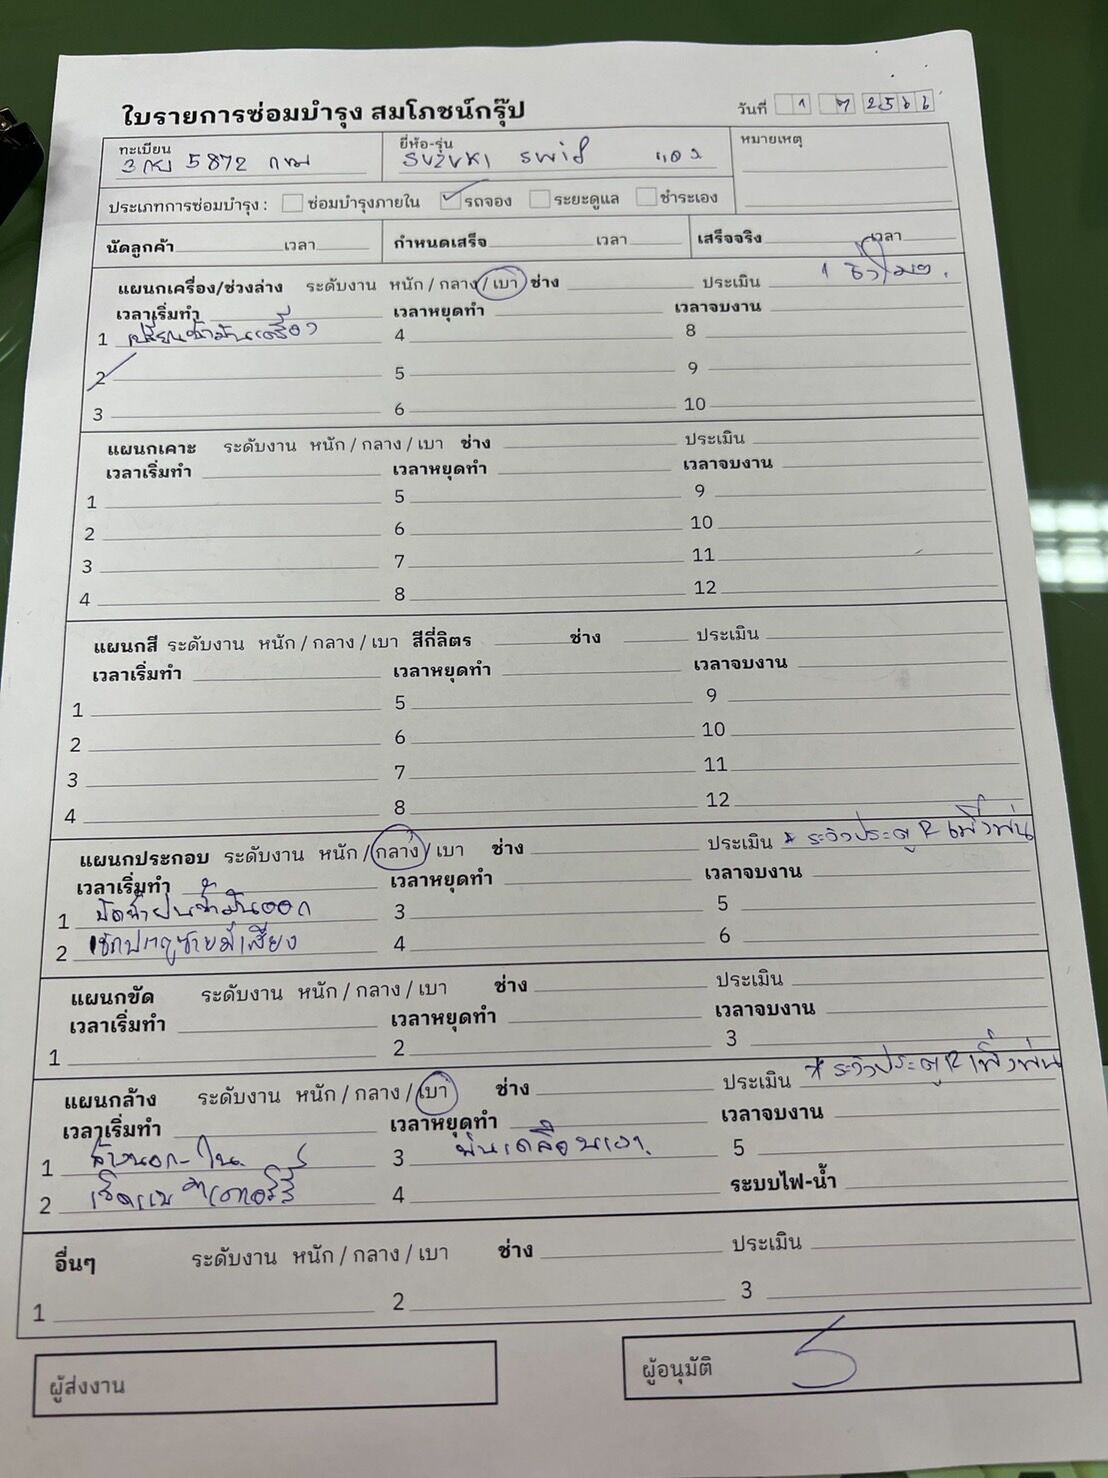 ใบรายการซ่อมบำรุง สมโภชน์กรุ๊ป
วันที่ 1 7 2566
ทะเบียน 5872 กทม
ยี่ห้อ-รุ่น SUZUKI swif แดง
หมายเหตุ
ประเภทการซ่อมบำรุง : ซ่อมบำรุงภายใน รถจอง ระยะดูแล ชำระเอง
นัดลูกค้า เวลา กำหนดเสร็จ เวลา เสร็จจริง เวลา
แผนกเครื่อง/ช่วงล่าง ระดับงาน หนัก / กลาง / เบา ช่าง ประเมิน 1 ชั่วโมง
เวลาเริ่มทำ เวลาหยุดทำ เวลาจบงาน
1 เปลี่ยนน้ำมันเครื่อง 4 8
2 5 9
3 6 10
แผนกเคาะ ระดับงาน หนัก / กลาง / เบา ช่าง ประเมิน
เวลาเริ่มทำ เวลาหยุดทำ เวลาจบงาน
1 5 9
2 6 10
3 7 11
4 8 12
แผนกสี ระดับงาน หนัก / กลาง / เบา สีกี่ลิตร ช่าง ประเมิน
เวลาเริ่มทำ เวลาหยุดทำ เวลาจบงาน
1 5 9
2 6 10
3 7 11
4 8 12
แผนกประกอบ ระดับงาน หนัก / กลาง / เบา ช่าง ประเมิน * ระวังประตู R เพิ่งพ่น
เวลาเริ่มทำ เวลาหยุดทำ เวลาจบงาน
1 น้ำมันออก 3 5
2 เช็คประตูซ้ายมีเสียง 4 6
แผนกขัด ระดับงาน หนัก / กลาง / เบา ช่าง
ประเมิน
เวลาเริ่มทำ เวลาหยุดทำ เวลาจบงาน
1 2 3
แผนกล้าง ระดับงาน หนัก / กลาง / เบา ช่าง ประเมิน * ระวังประตู R เพิ่งพ่น
เวลาเริ่มทำ เวลาหยุดทำ เวลาจบงาน
1 ล้างนอก-ใน 3 พ่นเคลือบเงา 5
2 4 ระบบไฟ-น้ำ
อื่นๆ ระดับงาน หนัก / กลาง / เบา ช่าง ประเมิน
1 2 3
ผู้ส่งงาน
ผู้อนุมัติ